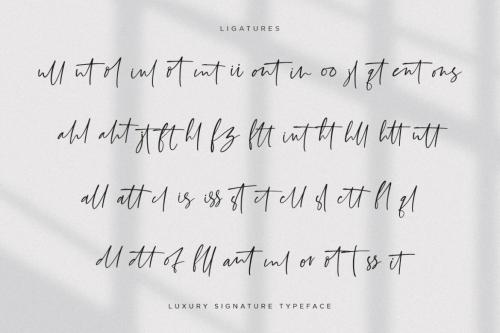 LIGATURES
ull ut ol inl ot int ii ont in oo jl qt ent ons
ahl aht jt ft hl fz ftt int ht hll htt utt
all att cl is iss st ct cll sl ctt fl ql
dl dtt of fll ant ml or ott ss it
LUXURY SIGNATURE TYPEFACE